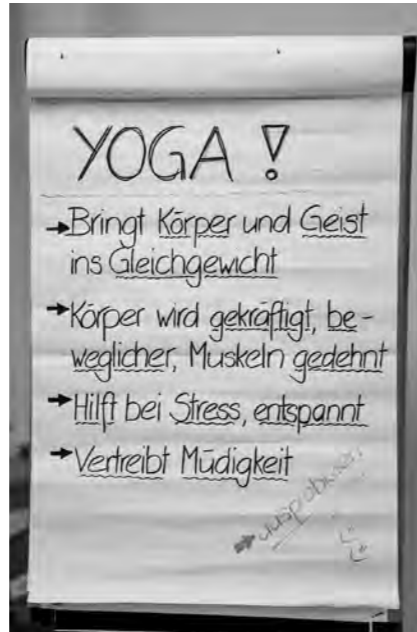 YOGA !
→Bringt Körper und Geist
ins Gleichgewicht
→Körper wird gekräftigt, be-
weglicher, Muskeln gedehnt
→Hilft bei Stress, entspannt
→Vertreibt Müdigkeit